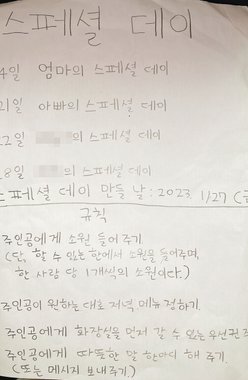 스페셜 데이
4일 엄마의 스페셜 데이
21일 아빠의 스페셜 데이
22일 의 스페셜 데이
8일 의 스페셜 데이
스페셜 데이 만들 날: 2023 1/27 (금
규칙
주인공에게 소원 들어주기
(단, 할 수 있는 한에서 소원을 들어주며,
한 사람 당 1개씩의 소원이다.)
주인공이 원하는 대로 저녁 메뉴 정하기.
주인공에게 화장실을 먼저 갈 수 있는 우선권
주인공에게 따뜻한 말 한마디 해 주기.
(또는 메시지 보내주기.)